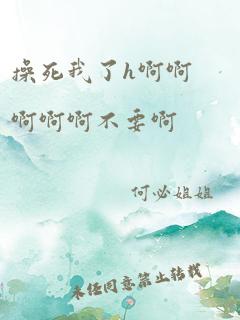 操死我了h啊啊
啊啊啊不要啊
何必姐姐
未经同意禁止转载